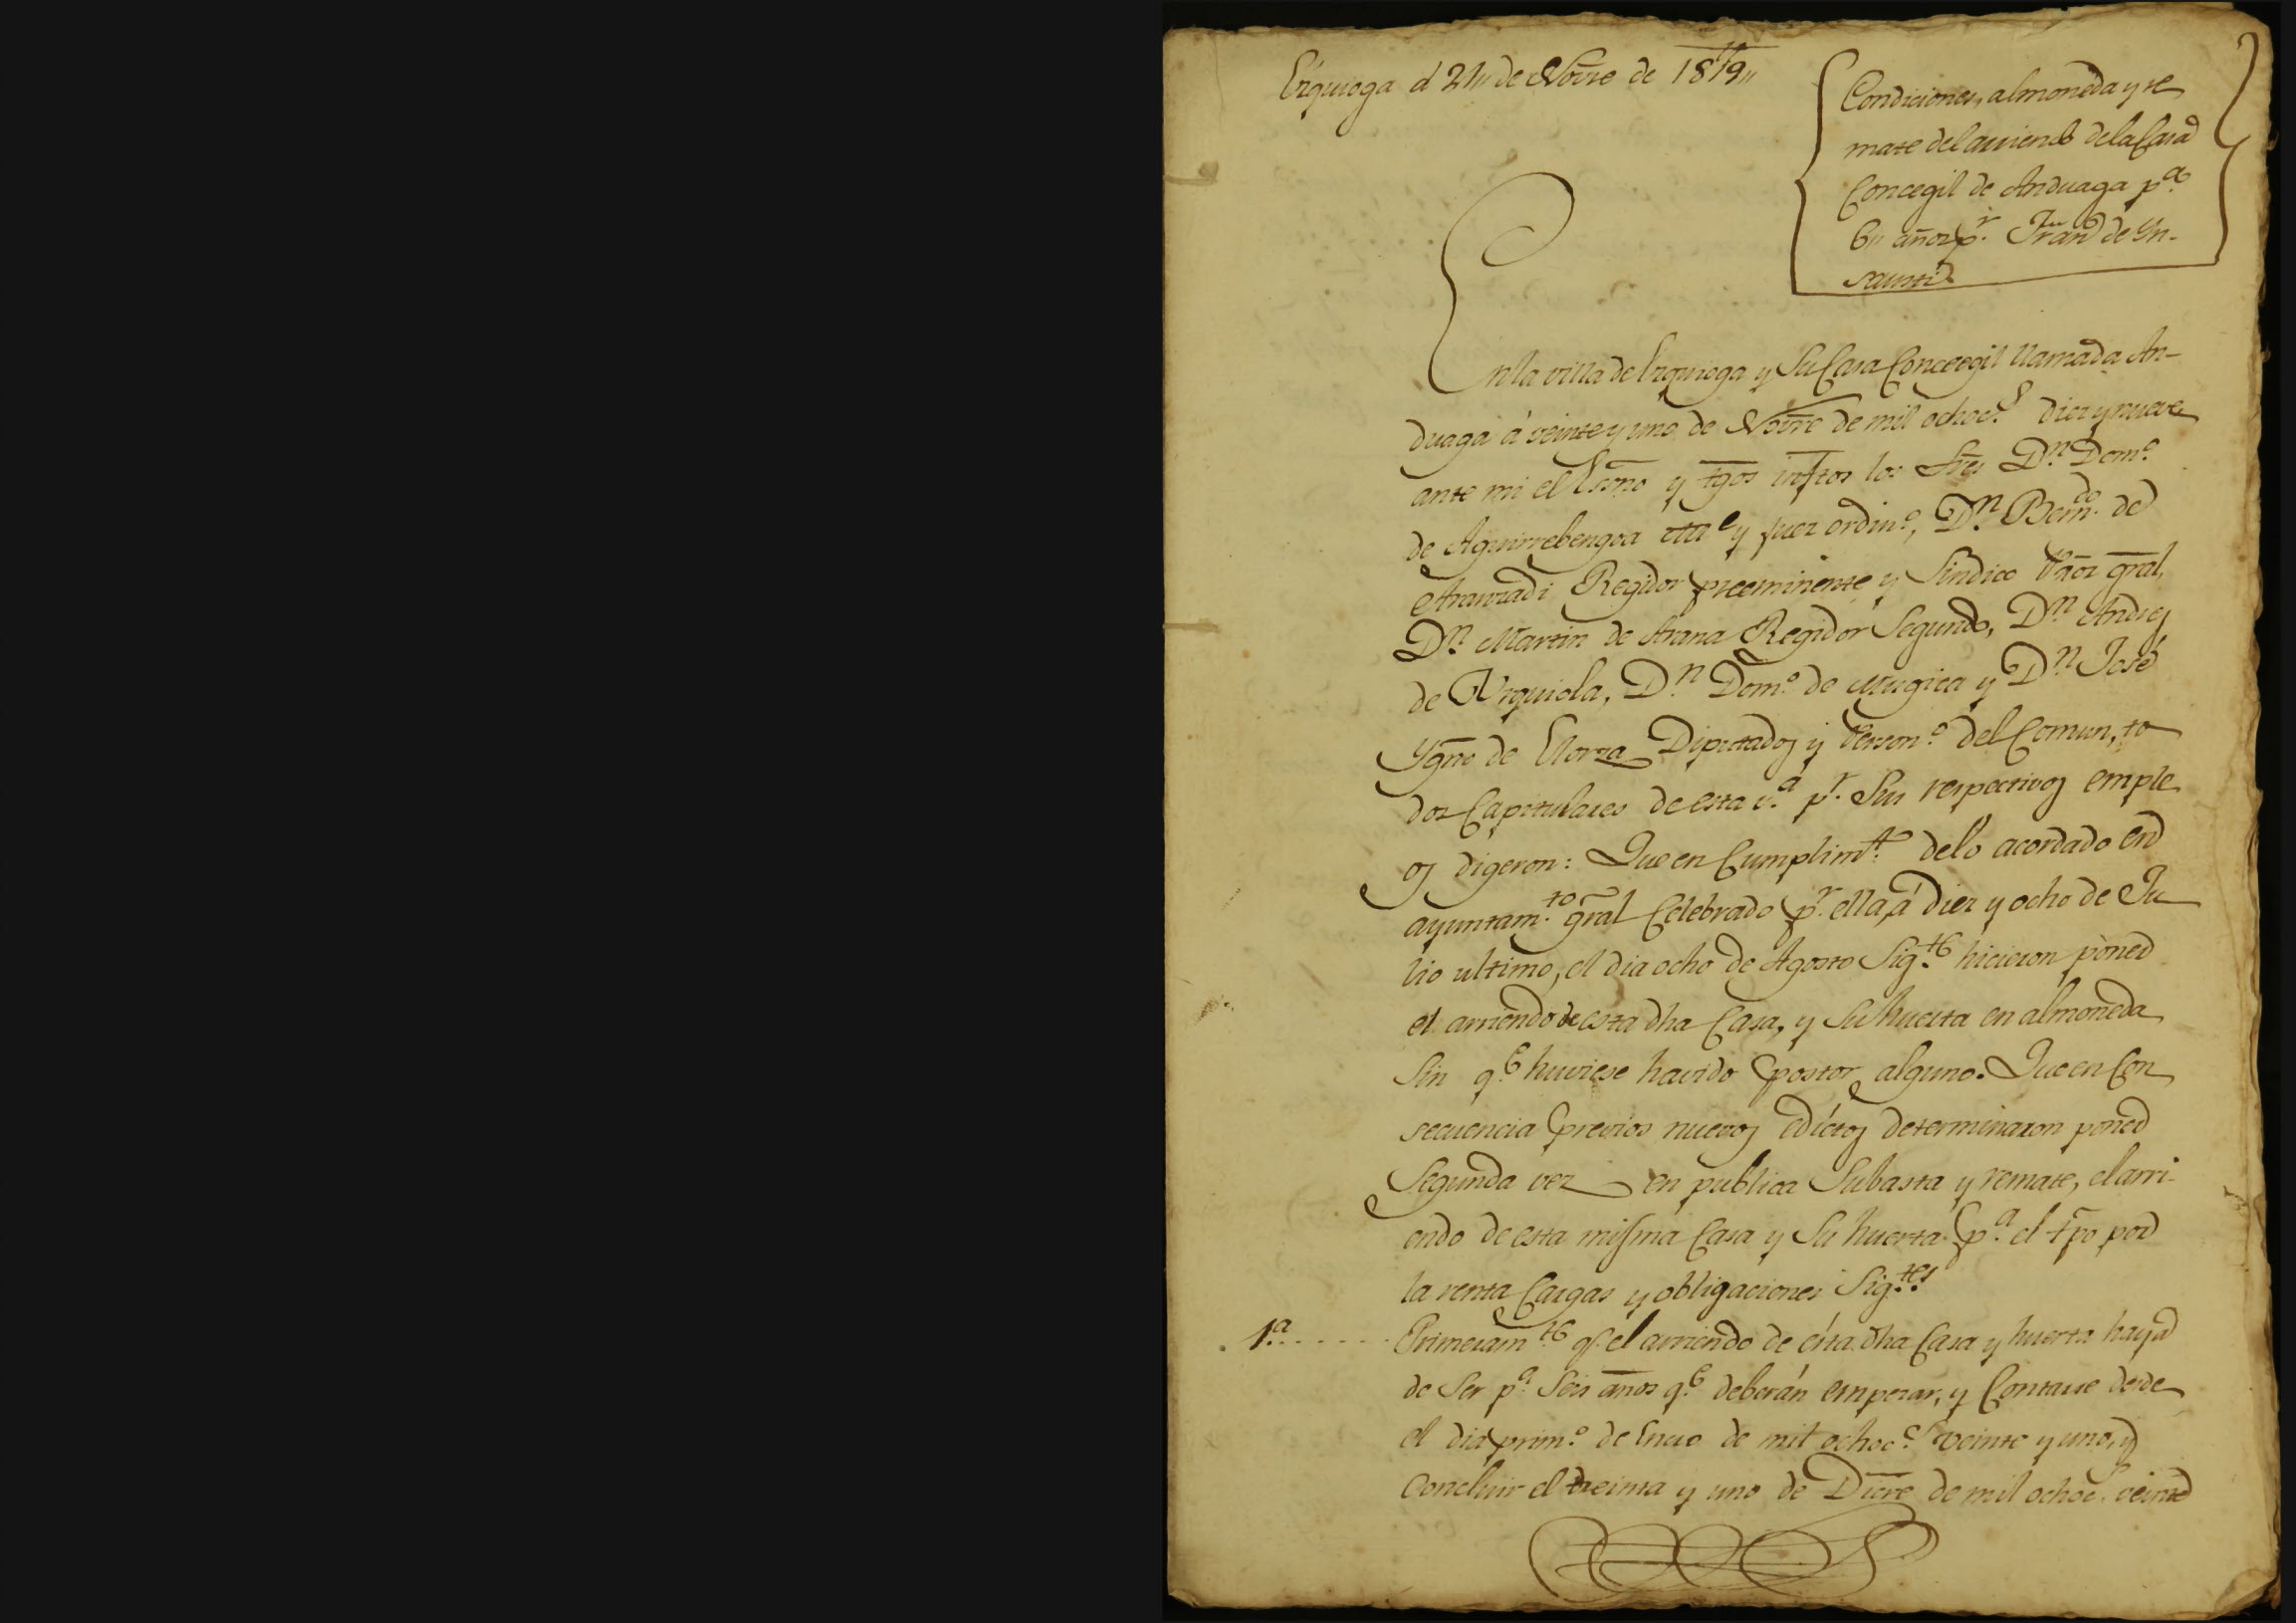 Ezquioga á 21,, de Novre de 1819,,
Condiciones, almoneda y re
mate del arriendo dela Casa
Concegil de Anduaga pa
6,, años pr. Fran de Yn-
sausti
En la villa de Ezquioga y Su Casa Conceegil llamada An-
duaga á veinte y uno de Novre de mil ochocs. diez y nueve
ante mi el Esno y tgos infros los Sres Dn. Domo.
de Aguirrebengoa Alle y Juez ordino., Dn. Berndo. de
Aranzadi Regidor preeminente y Sindico Pror gral,
Dn. Martin de Arana Regidor Segundo, Dn Andres
de Urquiola, Dn. Domo. de Mugica y Dn José
Ygno de Elorza Diputados y Persono. del Comun, to
dos Capitulares de esta va. pr. Sus respectivos emple
os digeron: Que en Cumplimto. delo acordado en
ayuntamto. gral Celebrado pr. ella, á diez y ocho de Ju
lio ultimo, el dia ocho de Agosto Sigte. hicieron poner
el arriendo de esta dha Casa, y Su huerta en almoneda
Sin qe. huviese havido postor alguno. Que en Con
secuencia previos nuevos edictos determinaron poner
Segunda vez en publica Subasta y remate, el arri-
endo de esta misma Casa y Su huerta pa. el tpo por
la renta Cargas y obligaciones Sigtes.
1a. ...... Primeramte. qe. el arriendo de esta dha Casa y huerta haya
de Ser pa. Seis años qe. deberán empezar, y Contarse desde
el dia primo. de Enero de mil ochocs. veinte y uno, y
Concluir el treinta y uno de Dicre de mil ochocs. veinte